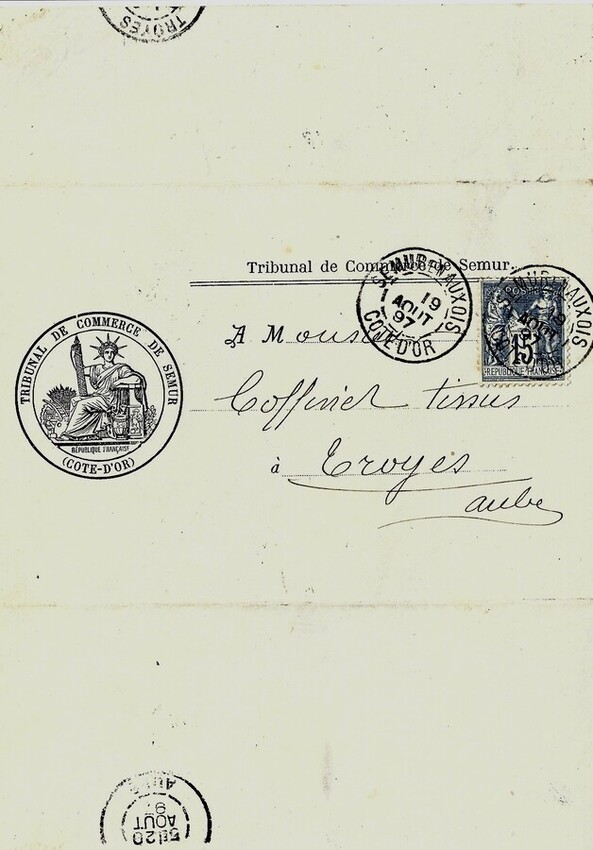 TROYES
Tribunal de Commerce de Semur
SEMUR-EN-AUXOIS
19
AOUT
97
COTE-D'OR
SEMUR AUXOIS
19
AOUT
97
15
REPUBLIQUE FRANÇAISE
TRIBUNAL DE COMMERCE DE SEMUR
RÉPUBLIQUE FRANÇAISE
(COTE-D'OR)
A Mons
Coffinet tissus
à Troyes
aube
5E 20
AOUT
97
AUBE